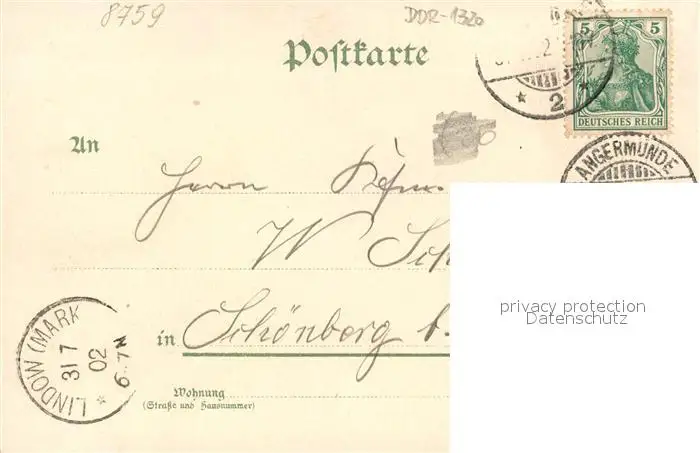 8759
DDR-1320
Postkarte
5 5
DEUTSCHES REICH
* 2 *
ANGERMÜNDE
An
Herrn
W Sch
in Schönberg b.
Wohnung
(Straße und Hausnummer)
LINDOW (MARK
31 7
02
6..7N
*
privacy protection
Datenschutz